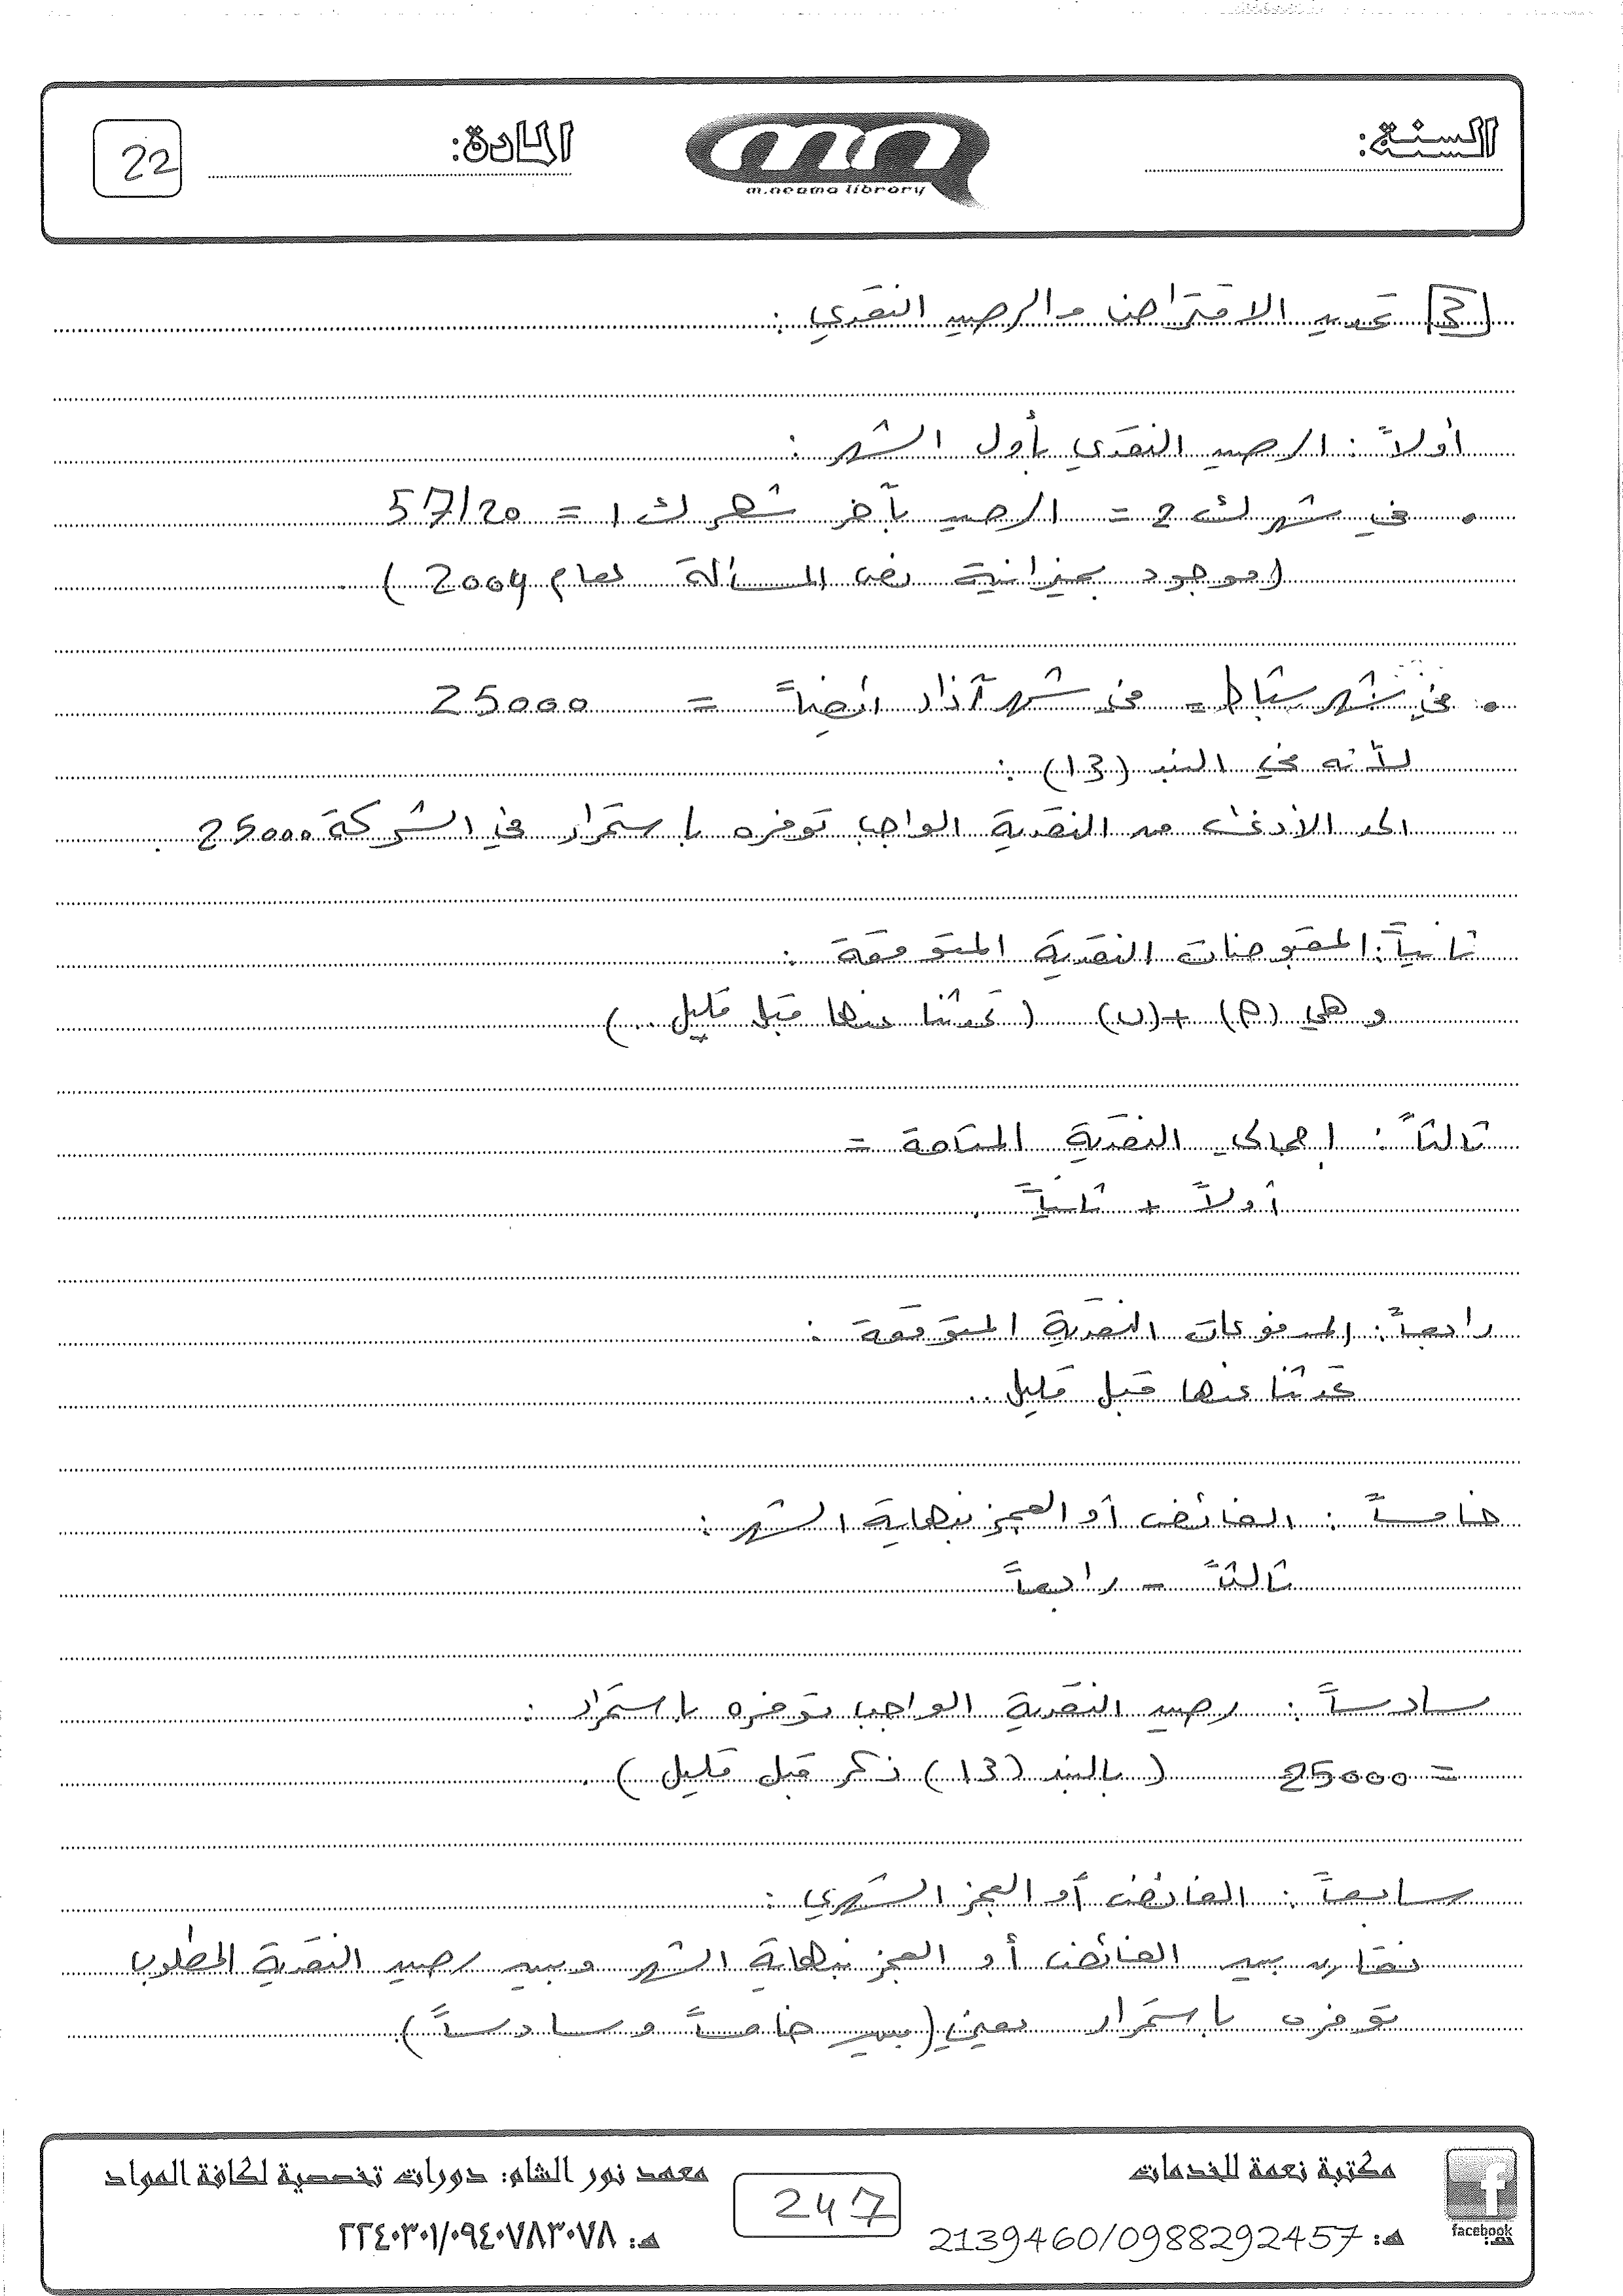 السنة:
m.neama library
المادة:
22
3 تحديد الاقتراض والرصيد النقدي :
أولاً : الرصيد النقدي بأول الشهر :
• في شهر ك 2 = الرصيد بآخر شهر ك 1 = 57120
(موجود بميزانية نص المسألة لعام 2004)
• في شهر شباط = في شهر آذار أيضاً = 25000
لأنه في البند (13) :
الحد الأدنى من النقدية الواجب توفره باستمرار في الشركة 25000 .
ثانياً : المقبوضات النقدية المتوقعة :
وهي (م) + (ن) (تحدثنا عنها قبل قليل ..)
ثالثاً : اجمالي النقدية المتاحة =
أولاً + ثانياً .
رابعاً : المدفوعات النقدية المتوقعة :
تحدثنا عنها قبل قليل ..
خامساً : الفائض أو العجز بنهاية الشهر :
ثالثاً - رابعاً
سادساً : رصيد النقدية الواجب توفره باستمرار :
= 25000 (بالبند (13) ذكر قبل قليل) .
سابعاً : الفائض أو العجز الشهري :
نقارن بين الفائض أو العجز بنهاية الشهر وبين رصيد النقدية المطلوب
توفره باستمرار يعني (بين خامساً وسادساً) .
مكتبة نعمة للخدمات
هـ: 2139460/0988292457
facebook
247
معهد نور الشام: دورات تخصصية لكافة المواد
هـ: ٢٢٤٠٣٠١/٠٩٤٠٧٨٣٠٧٨